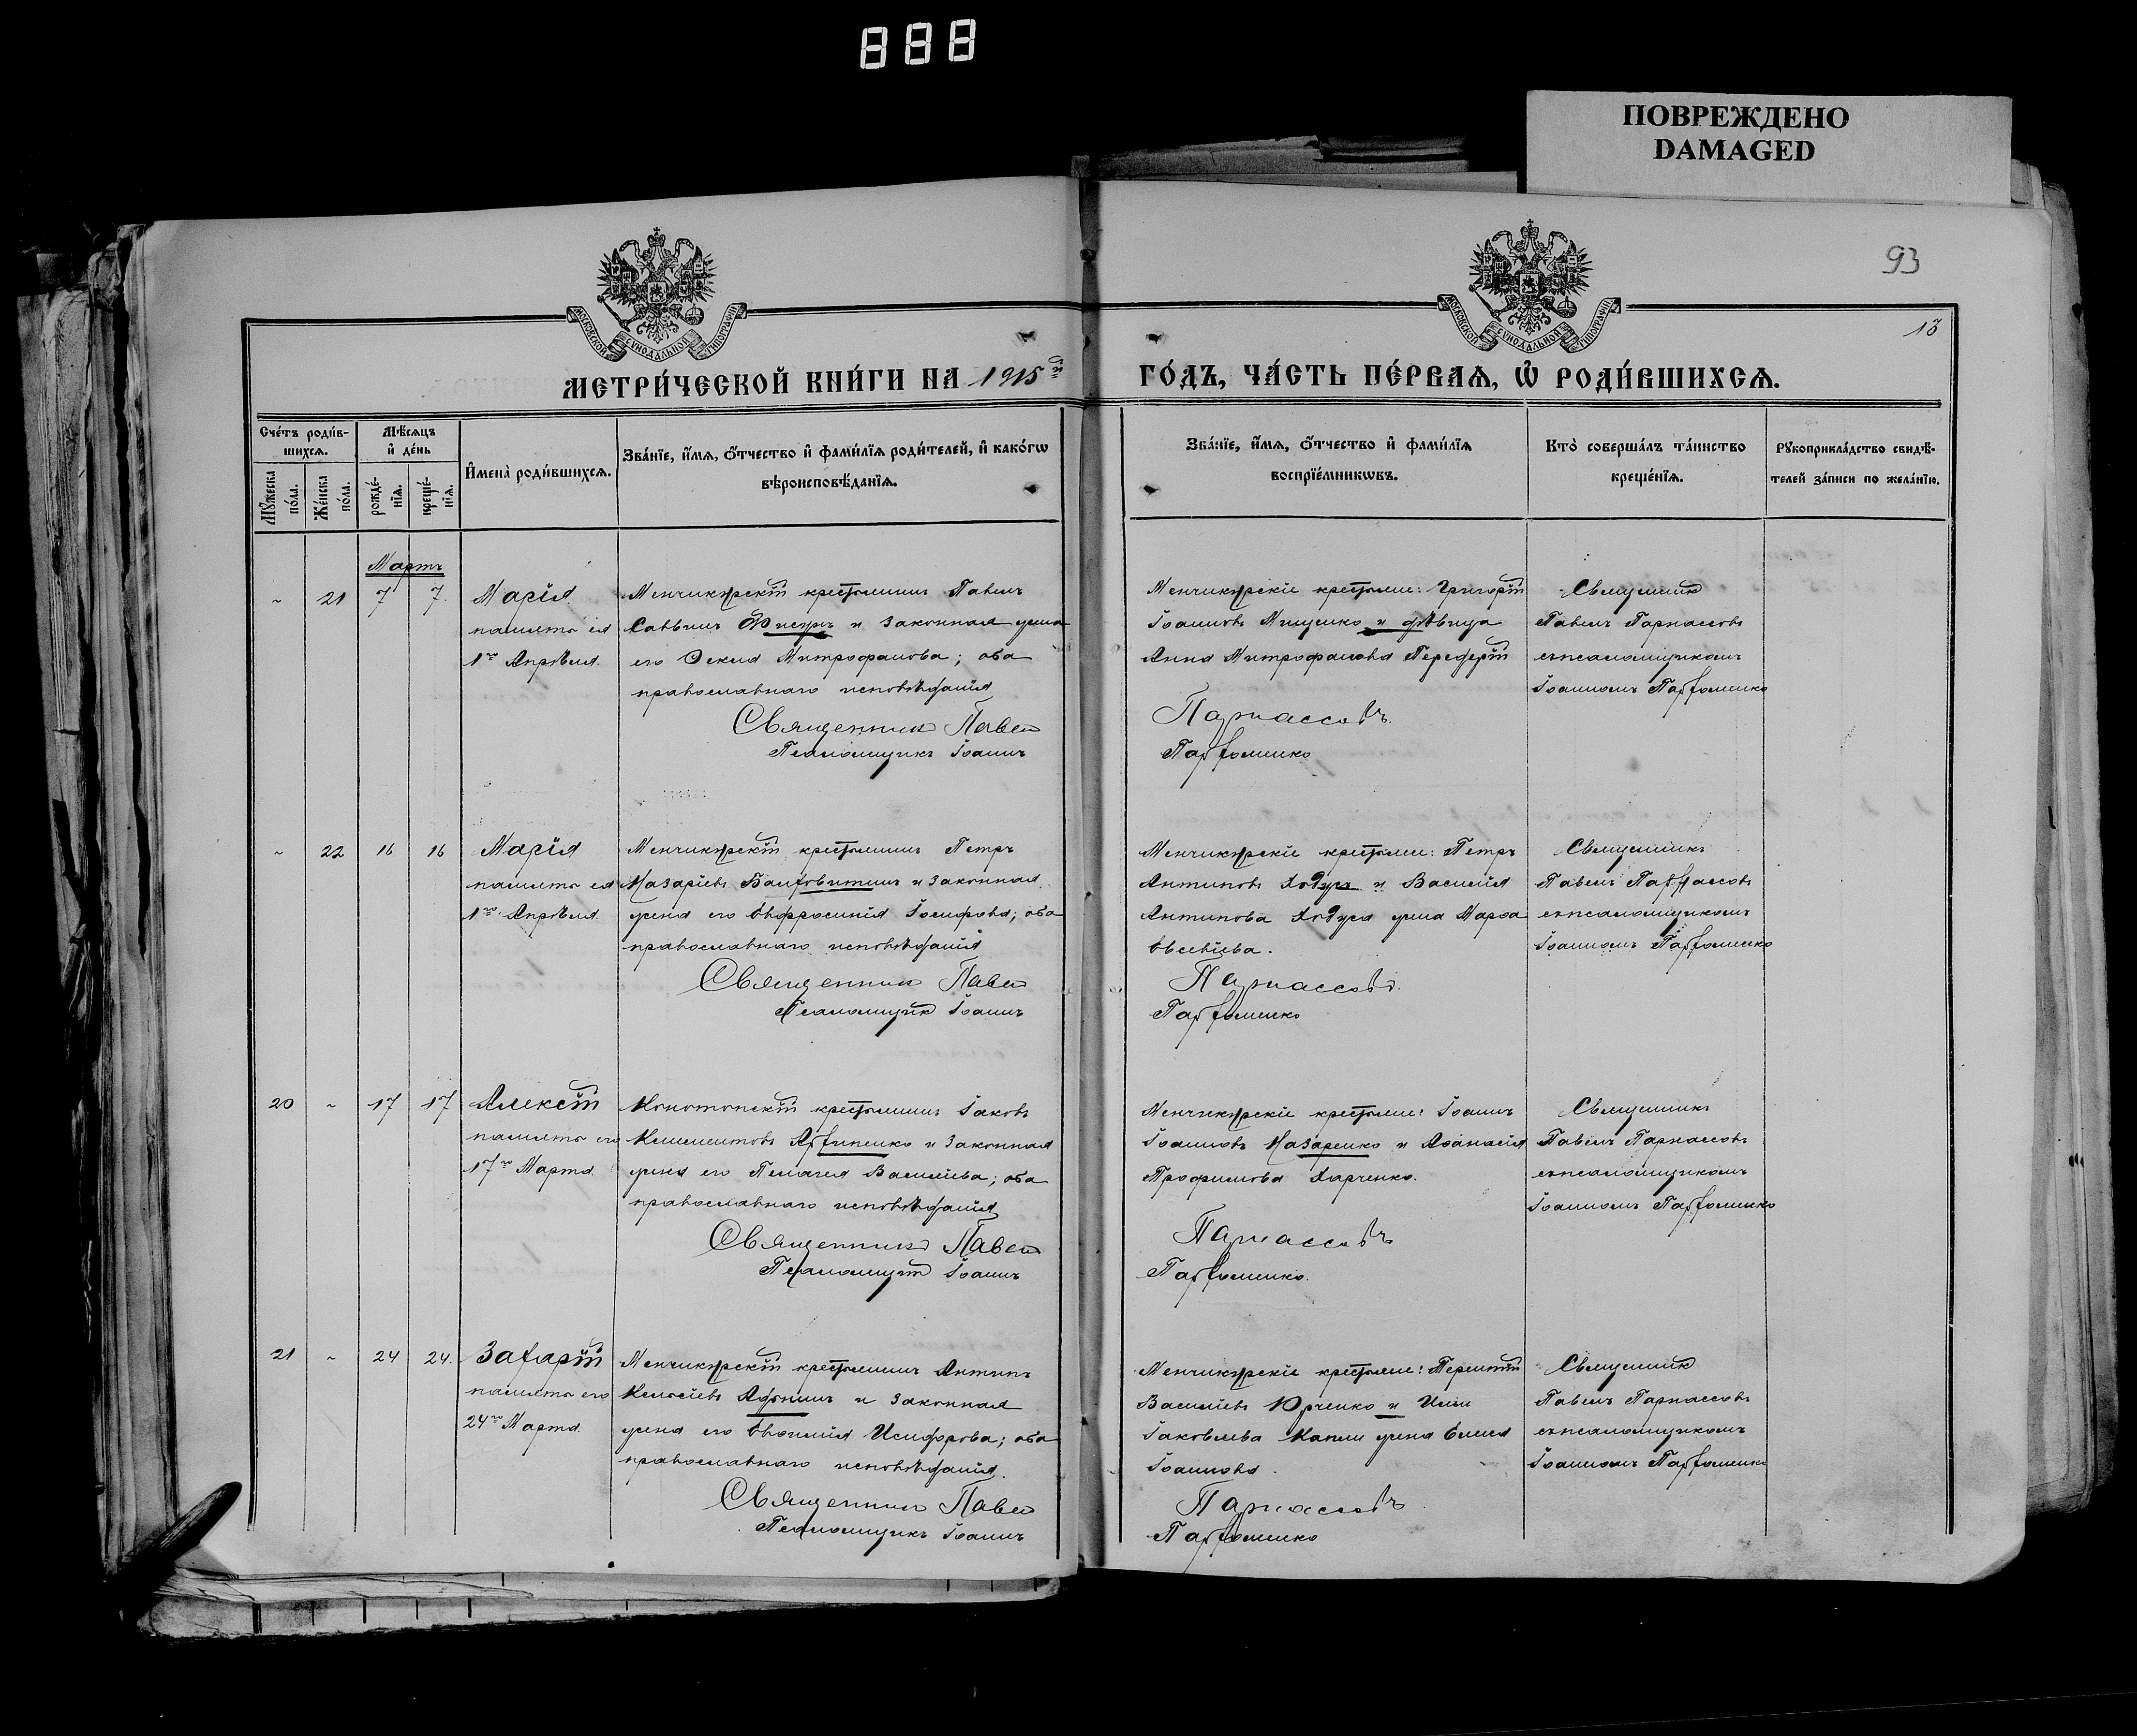 888
ПОВРЕЖДЕНО
DAMAGED
93
МОСКОВСКОЙ СУНОДАЛЬНОЙ ТИПОГРАФІИ
МОСКОВСКОЙ СУНОДАЛЬНОЙ ТИПОГРАФІИ
МЕТРИ́ЧЕСКОЙ КНИ́ГИ НА 1915й ГО́ДЪ, ЧА́СТЬ ПЕ́РВАѦ, Ѡ҆ РОДИ́ВШИХСѦ.
Сче́тъ роди́в-
шихсѧ.
Мѣ́сѧцъ
и҆ де́нь
Мꙋ́жеска по́ла.
Же́нска по́ла.
рожде́-
нїѧ.
креще́-
нїѧ.
И҆мена̀ роди́вшихсѧ.
Зва́нїе, и҆́мѧ, ѻ҆́тчество и҆ фами́лїѧ роди́телей, и҆ како́гѡ
вѣроисповѣ́данїѧ.
Зва́нїе, и҆́мѧ, ѻ҆́тчество и҆ фами́лїѧ
воспрїе́мникѡвъ.
Кто̀ соверша́лъ та́инство
креще́нїѧ.
Рꙋкоприкла́дство свидѣ́-
телей за́писи по жела́нїю.
Мартъ
~ 21 7 7. Марія
память ея
1го Апрѣля.
Менчикурскій крестьянинъ Павелъ
Саввинъ и законная жена
его Ѳекла Митрофанова; оба
православнаго исповѣданія
Священник Павел
Псаломщикъ Іоаннъ
Менчикурскіе крестьяне: Григорій
Іоанновъ Мищенко и дѣвица
Анна Митрофанова Передерій
Парнассовъ.
Парфоменко
Священник
Павелъ Парнассовъ
съ псаломщикомъ
Іоанномъ Парфоменко
~ 22 16 16 Марія
память ея
1го Апрѣля.
Менчикурскій крестьянинъ Петръ
Назаріевъ и законная
жена его Евфросинія Іосифова; оба
православнаго исповѣданія
Священник Павел
Псаломщик Іоаннъ
Менчикурскіе крестьяне: Петръ
Антиповъ Ходусъ и Василія
Антипова Ходуса жена Марѳа
Евсевіева.
Парнассовъ.
Парфоменко
Священникъ
Павелъ Парнассовъ
съ псаломщикомъ
Іоанномъ Парфоменко
20 ~ 17 17 Алексій
память его
17го Марта.
Конотопскій крестьянинъ Іаковъ
Климентовъ и законная
жена его Пелагея Василіева; оба
православнаго исповѣданія
Священникъ Павел
Псаломщик Іоаннъ
Менчикурскіе крестьяне: Іоаннъ
Іоанновъ Назаренко и Аѳанасія
Трофимова Харченко.
Парнассовъ
Парфоменко.
Священникъ
Павелъ Парнассовъ
съ псаломщикомъ
Іоанномъ Парфоменко
21 ~ 24 24. Захарій
память его
24го Марта.
Менчикурскій крестьянинъ Антипъ
Афонинъ и законная
жена его Исидорова; оба
православнаго исповѣданія.
Священник Павел
Псаломщикъ Іоаннъ
Менчикурскіе крестьяне: Терентій
Василіевъ Юрченко и Иліи
Іаковлева жена
Іоаннова.
Парнассовъ
Парфоменко
Священник
Павелъ Парнассовъ
съ псаломщикомъ
Іоанномъ Парфоменко